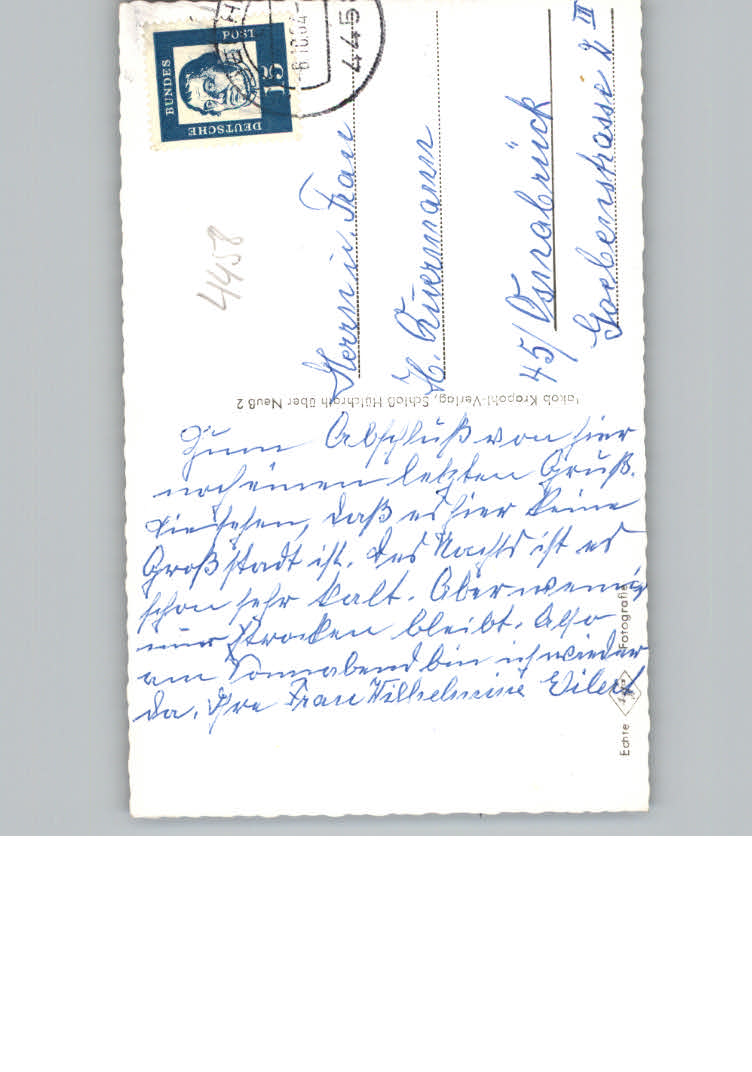 Zum Abschluß von hier
noch einen letzten Gruß.
Sie sehen, daß es hier keine
Großstadt ist. Des Nachts ist es
schon sehr kalt. Aber wenn es
nur trocken bleibt. Also
am Sonnabend bin ich wieder
da. Ihre Frau Wilhelmine Eilert
Herrn u. Frau
H. Quermann
45/Osnabrück
Goebenstrasse 2 III
Jakob Krapohl-Verlag, Schloß Hülchrath über Neuß 2
Echte Fotografie
4458
DEUTSCHE
BUNDES
POST
15
-6.10.64-
445